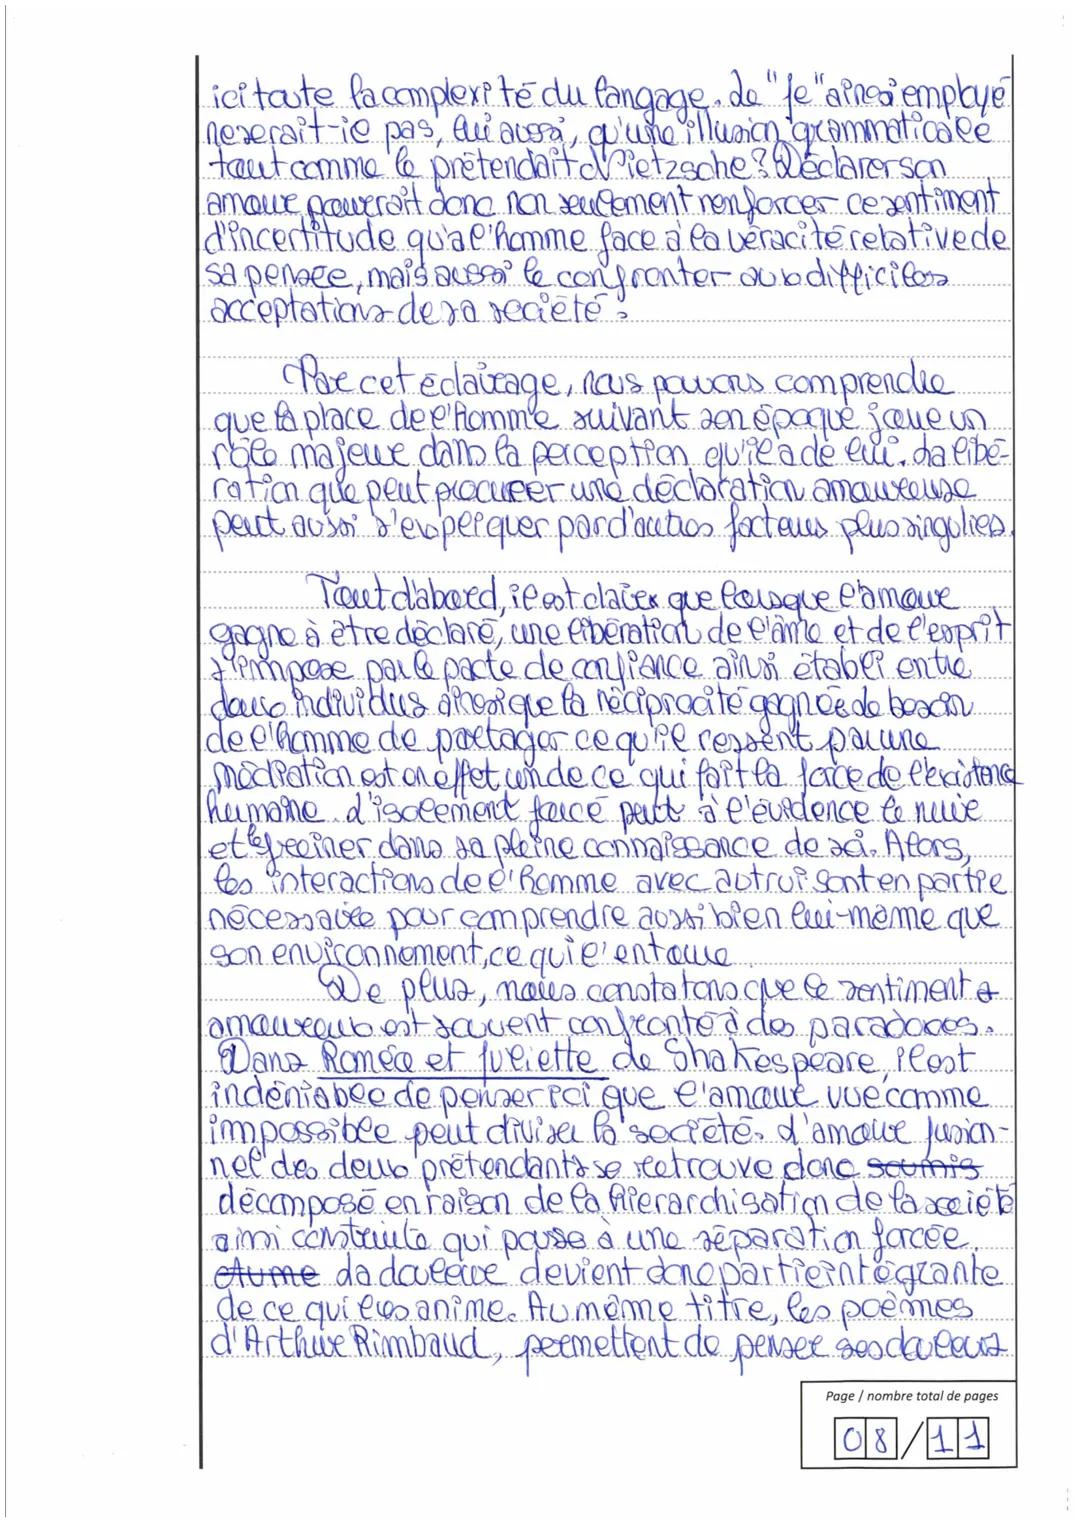 ici toute la complexité du langage. Le "Je" ainsi employé
ne serait-ie pas, lui aussi, qu'une illusion grammaticale
tout comme le prétendait Nietzsche ? Déclarer son
amour pourrait donc non seulement renforcer ce sentiment
d'incertitude qu'a l'homme face à la véracité relative de
sa pensée, mais aussi le confronter aux difficiles
acceptations de sa société.
Par cet éclairage, nous pouvons comprendre
que la place de l'homme suivant son époque joue un
rôle majeur dans la perception qu'il a de lui. La libé-
ration que peut procurer une déclaration amoureuse
peut aussi s'expliquer par d'autres facteurs plus singuliers.
Tout d'abord, il est clair que lorsque l'amour
gagne à être déclaré, une libération de l'âme et de l'esprit
s'impose par le pacte de confiance ainsi établi entre
deux individus ainsi que la réciprocité gagnée. Le besoin
de l'homme de partager ce qu'il ressent par une
médiation est en effet un de ce qui fait la force de l'existence
humaine. L'isolement forcé peut à l'évidence le nuire
et le freiner dans sa pleine connaissance de soi. Alors,
les interactions de l'Homme avec autrui sont en partie
nécessaire pour comprendre aussi bien lui-même que
son environnement, ce qui l'entoure.
De plus, nous constatons que le sentiment
amoureux est souvent confronté à des paradoxes.
Dans Roméo et Juliette de Shakespeare, il est
indéniable de penser ici que l'amour vue comme
impossible peut diviser la société. L'amour fusion-
nel des deux prétendants se retrouve donc soumis
décomposé en raison de la hiérarchisation de la société
ainsi construite qui pousse à une séparation forcée.
La douleur devient donc partie intégrante
de ce qui les anime. Au même titre, les poèmes
d'Arthur Rimbaud, permettent de penser ses douleurs
Page / nombre total de pages
08/11